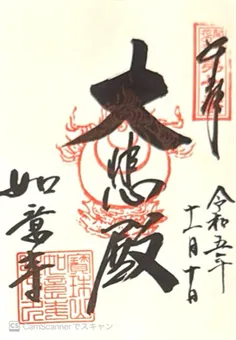 奉拝
大悲殿
令和五年
十一月十日
如意寺
CS CamScannerでスキャン